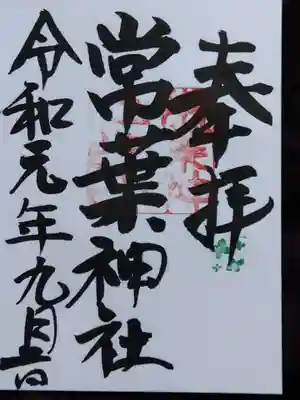 奉拝
常葉神社
令和元年九月吉日